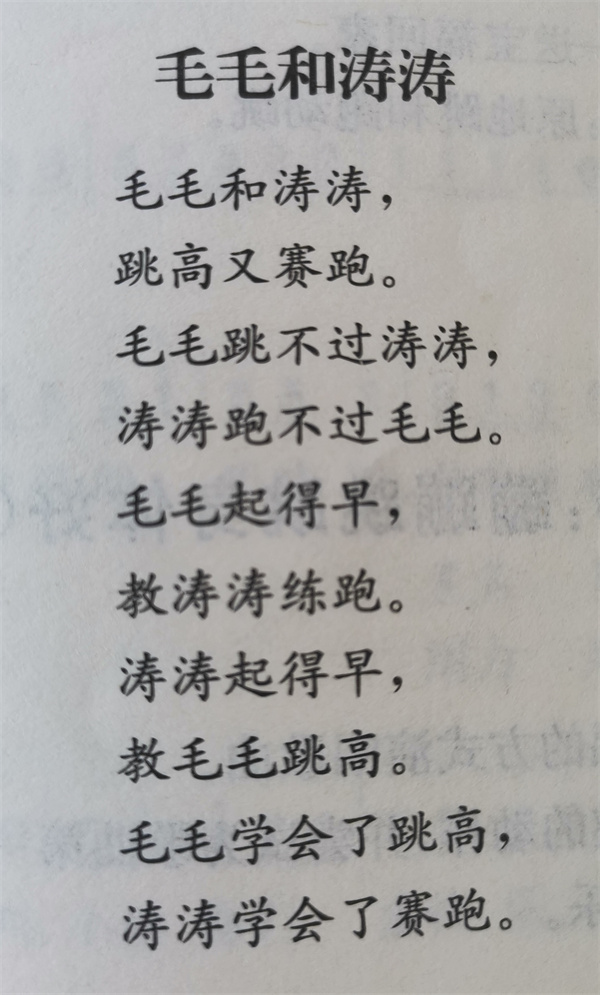 毛毛和涛涛
毛毛和涛涛，
跳高又赛跑。
毛毛跳不过涛涛，
涛涛跑不过毛毛。
毛毛起得早，
教涛涛练跑。
涛涛起得早，
教毛毛跳高。
毛毛学会了跳高，
涛涛学会了赛跑。